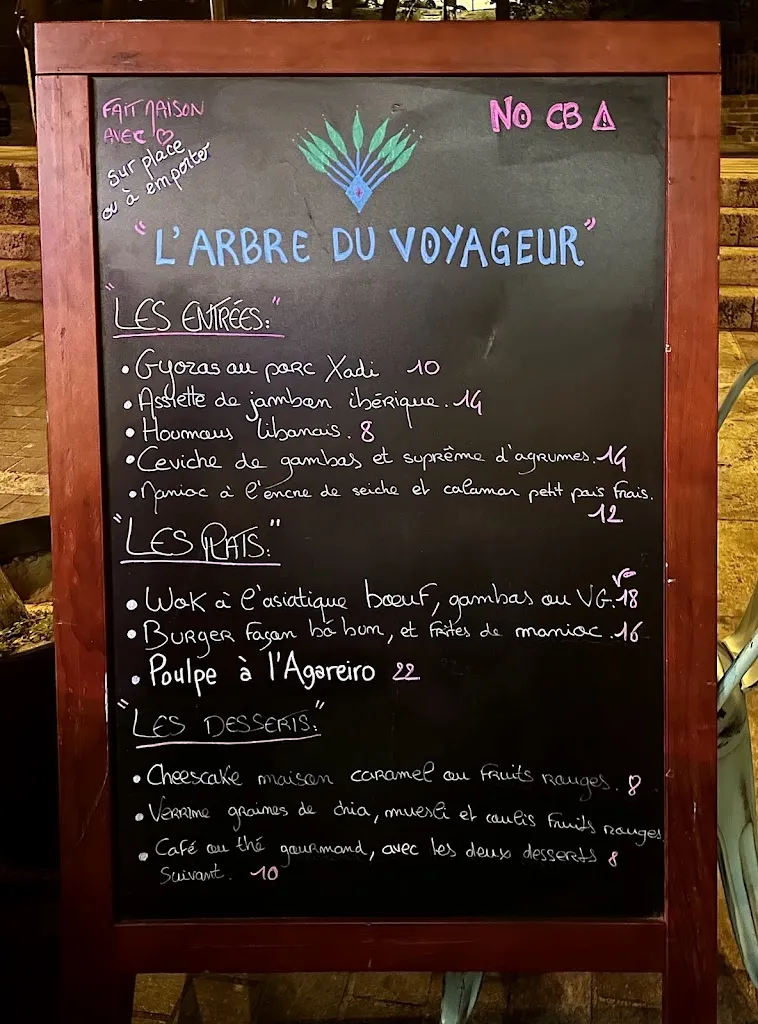 FAIT MAISON
AVEC ♡
sur place
ou à emporter
NO CB ⚠
"L'ARBRE DU VOYAGEUR"
"LES ENTRÉES:"
• Gyozas au porc Xadi 10
• Assiette de jambon ibérique. 14
• Houmous libanais. 8
• Ceviche de gambas et suprême d'agrumes. 14
• Manioc à l'encre de seiche et calamar petit pois frais.
12
"LES PLATS:"
• Wok à l'asiatique bœuf, gambas ou VG. 18
• BURGER façon bò bun, et frites de manioc. 16
• Poulpe à l'Agareiro 22
"LES DESSERTS:"
• Cheescake maison caramel ou fruits rouges. 8
• Verrine graines de chia, muesli et coulis fruits rouges
8
• Café ou thé gourmand, avec les deux desserts
Suivant. 10